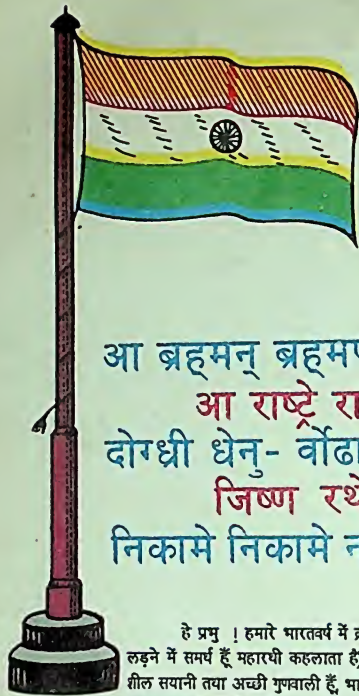 आ ब्रह्मन् ब्रह्मण
आ राष्ट्रे रा
दोग्ध्री धेनु- र्वोढा
जिष्ण रथे
निकामे निकामे न
हे प्रभु ! हमारे भारतवर्ष में
लड़ने में समर्थ हूँ महारथी कहलाता है
शील सयानी तथा अच्छी गुणवाली हूँ, भा